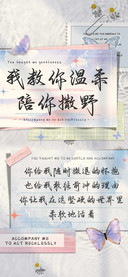 You taught me recklessly
我教你温柔
陪你撒野
ACCOMPANY ME TO ACT RECKLESSLY
YOU TAUGHT ME TO BE GENTLE AND ACCOMPANY
你给我随时撤退的怀抱
也给我敢往前冲的理由
你让我在这坚硬的世界里
柔软地活着
ACCOMPANY ME
TO ACT RECKLESSLY